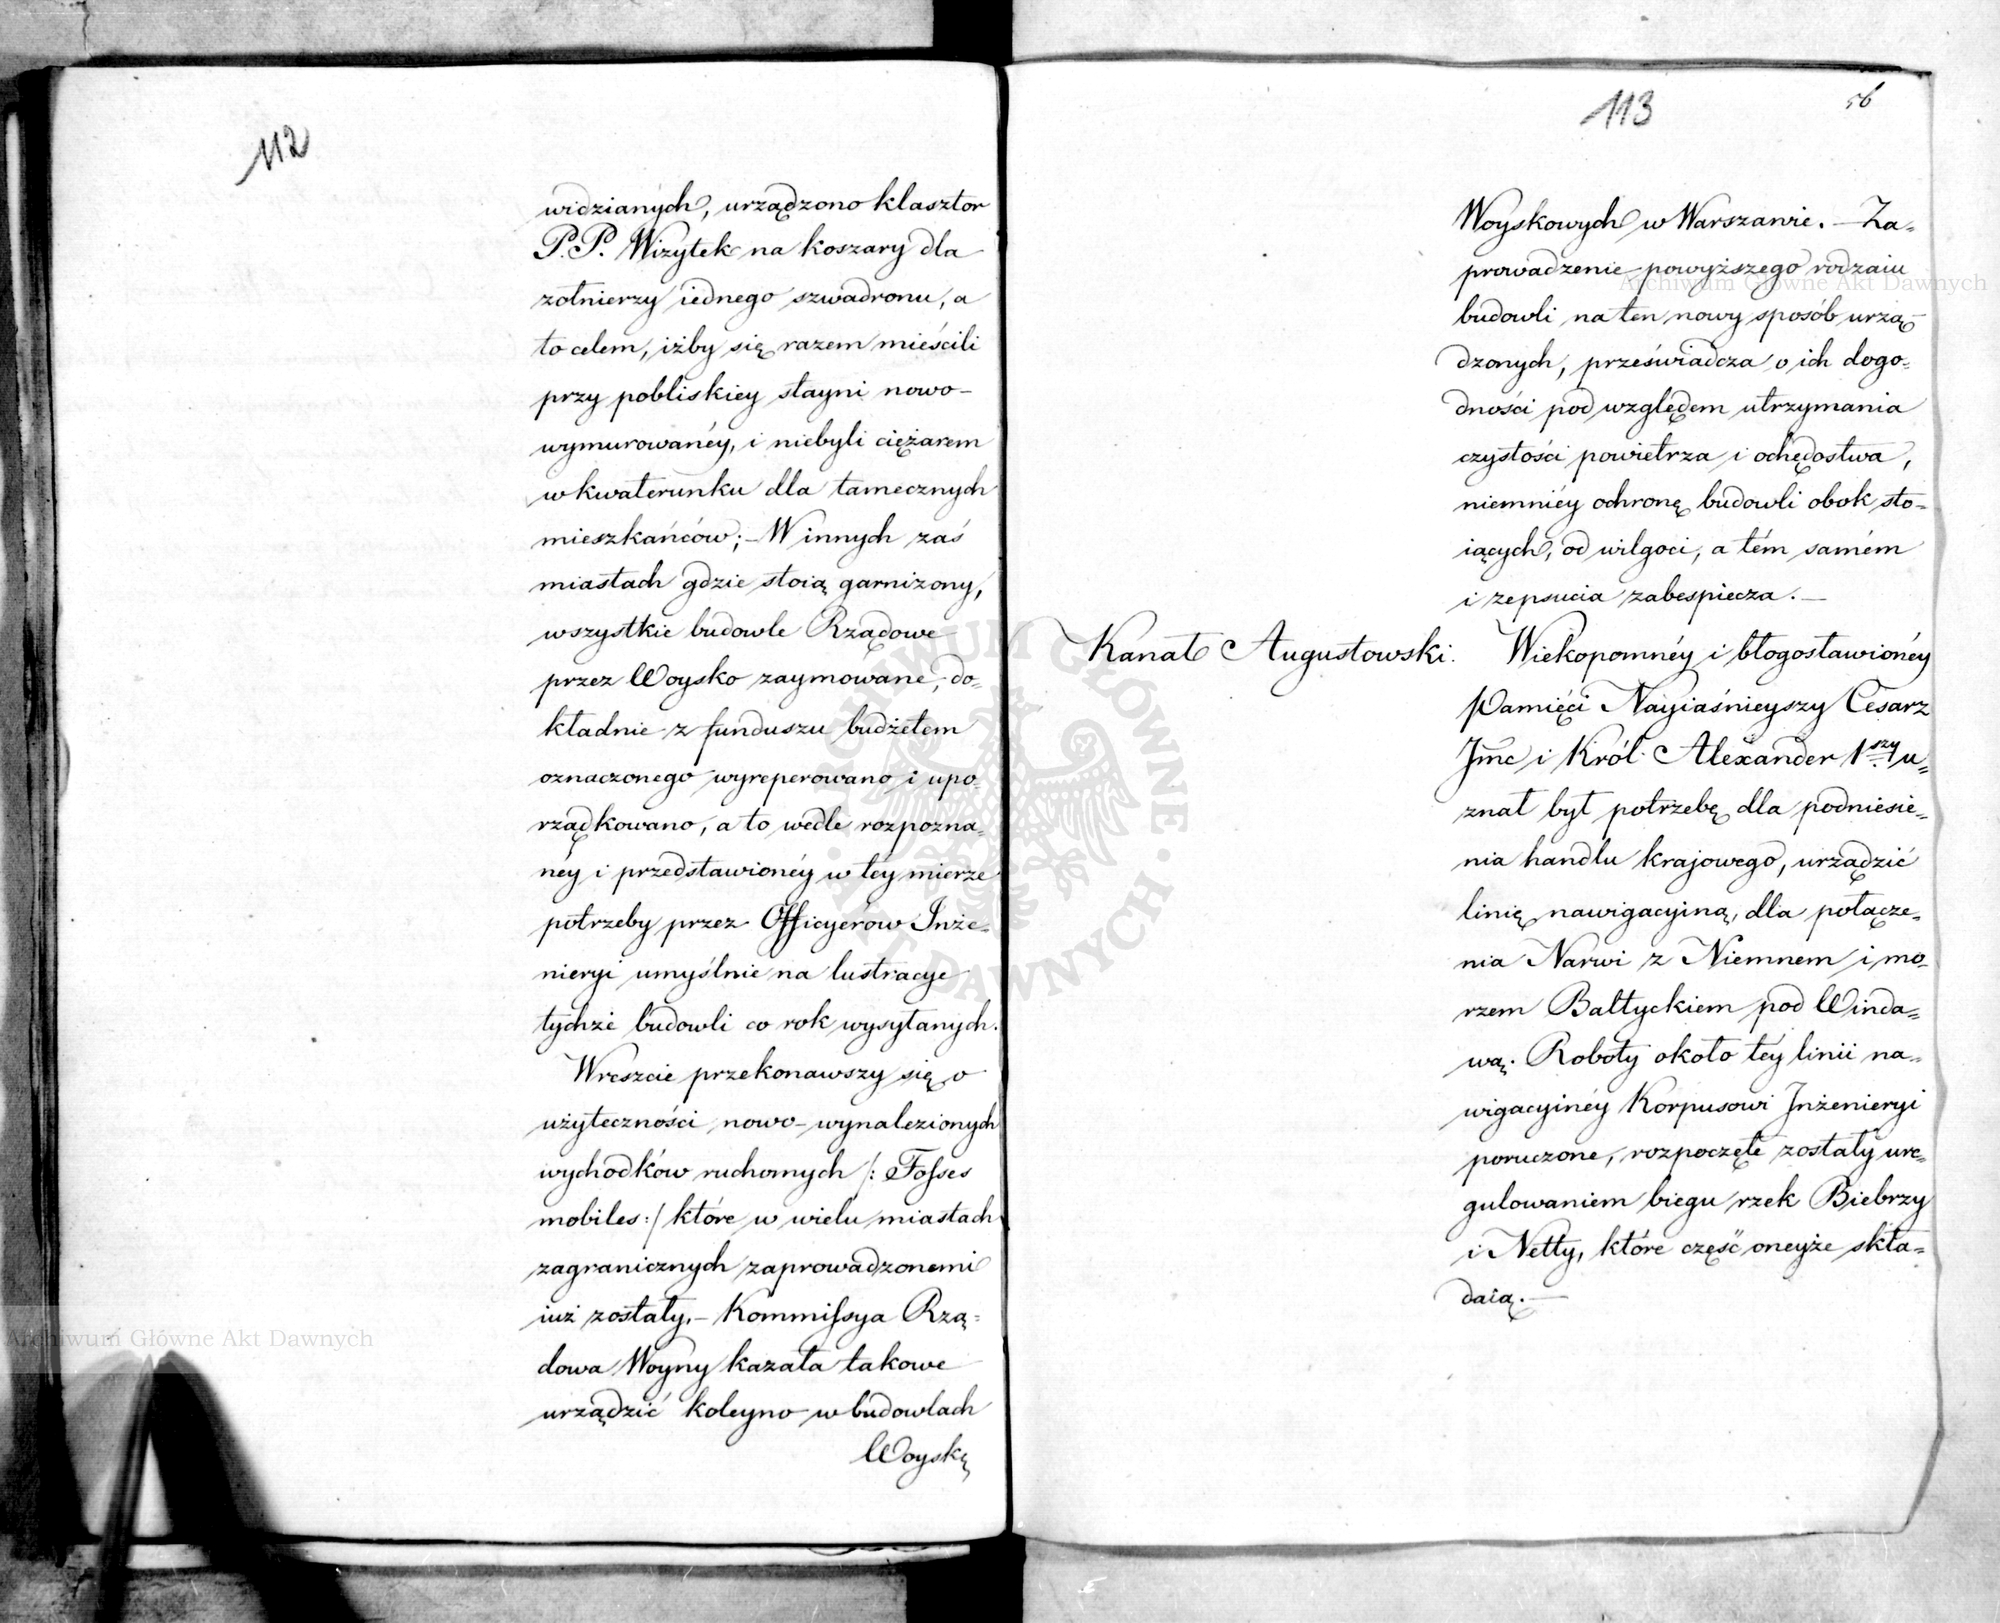 112
widzianých, urządzono klasztor
P.P. Wizytek na koszary dla
żołnierzy iednego szwadronu, a
to celem, iżby się razem mieścili
przy pobliskiey stayni nowo-
wymurowanéy, i niebyli ciężarem
w kwaterunku dla tamecznych
mieszkańców; – W innych zaś
miastach gdzie stoią garnizony,
wszystkie budowle Rządowe
przez Woysko zaymowane, do-
kładnie z funduszu budżetem
oznaczonego wyreperowano i upo-
rządkowano, a to wedle rozpozna-
néy i przedstawionéy w téy mierze
potrzeby przez Officyerów Inże-
nieryi umyślnie na lustracye
tychże budowli co rok wysyłanych.
Wreszcie przekonawszy się o
użyteczności nowo-wynalezionych
wychodków ruchomych /: Fosses
mobiles :/ które w wielu miastach
zagranicznych zaprowadzonemi
iuż zostały. – Kommissya Rzą-
dowa Woyny kazała takowe
urządzić koleyno w budowlach
Woysko
113
56
Woyskowych w Warszawie. – Za-
prowadzenie powyższego rodzaiu
budowli na ten nowy sposób urzą-
dzonych, przeświadcza o ich dogo-
dności pod względem utrzymania
czystości powietrza i ochędostwa,
niemniéy ochronę budowli obok sto-
iących, od wilgoci, a tém samém
i zepsucia zabespiecza. –
Kanał Augustowski.
Wiekopomnéy i błogosławionéy
Pamięci Nayiaśnieyszy Cesarz
Jmć i Król Alexander 1szy u-
znał był potrzebę dla podniesie-
nia handlu krajowego, urządzić
linię nawigacyiną, dla połącze-
nia Narwi z Niemnem i mo-
rzem Bałtyckiem pod Winda-
wą. Roboty około téy linii na-
wigacyinéy Korpusowi Inżenieryi
poruczone, rozpoczęte zostały ure-
gulowaniem biegu rzek Biebrzy
i Netty, które część oneyże skła-
daią. –
Archiwum Główne Akt Dawnych
Archiwum Główne Akt Dawnych
ARCHIWUM GŁÓWNE · AKT DAWNYCH ·